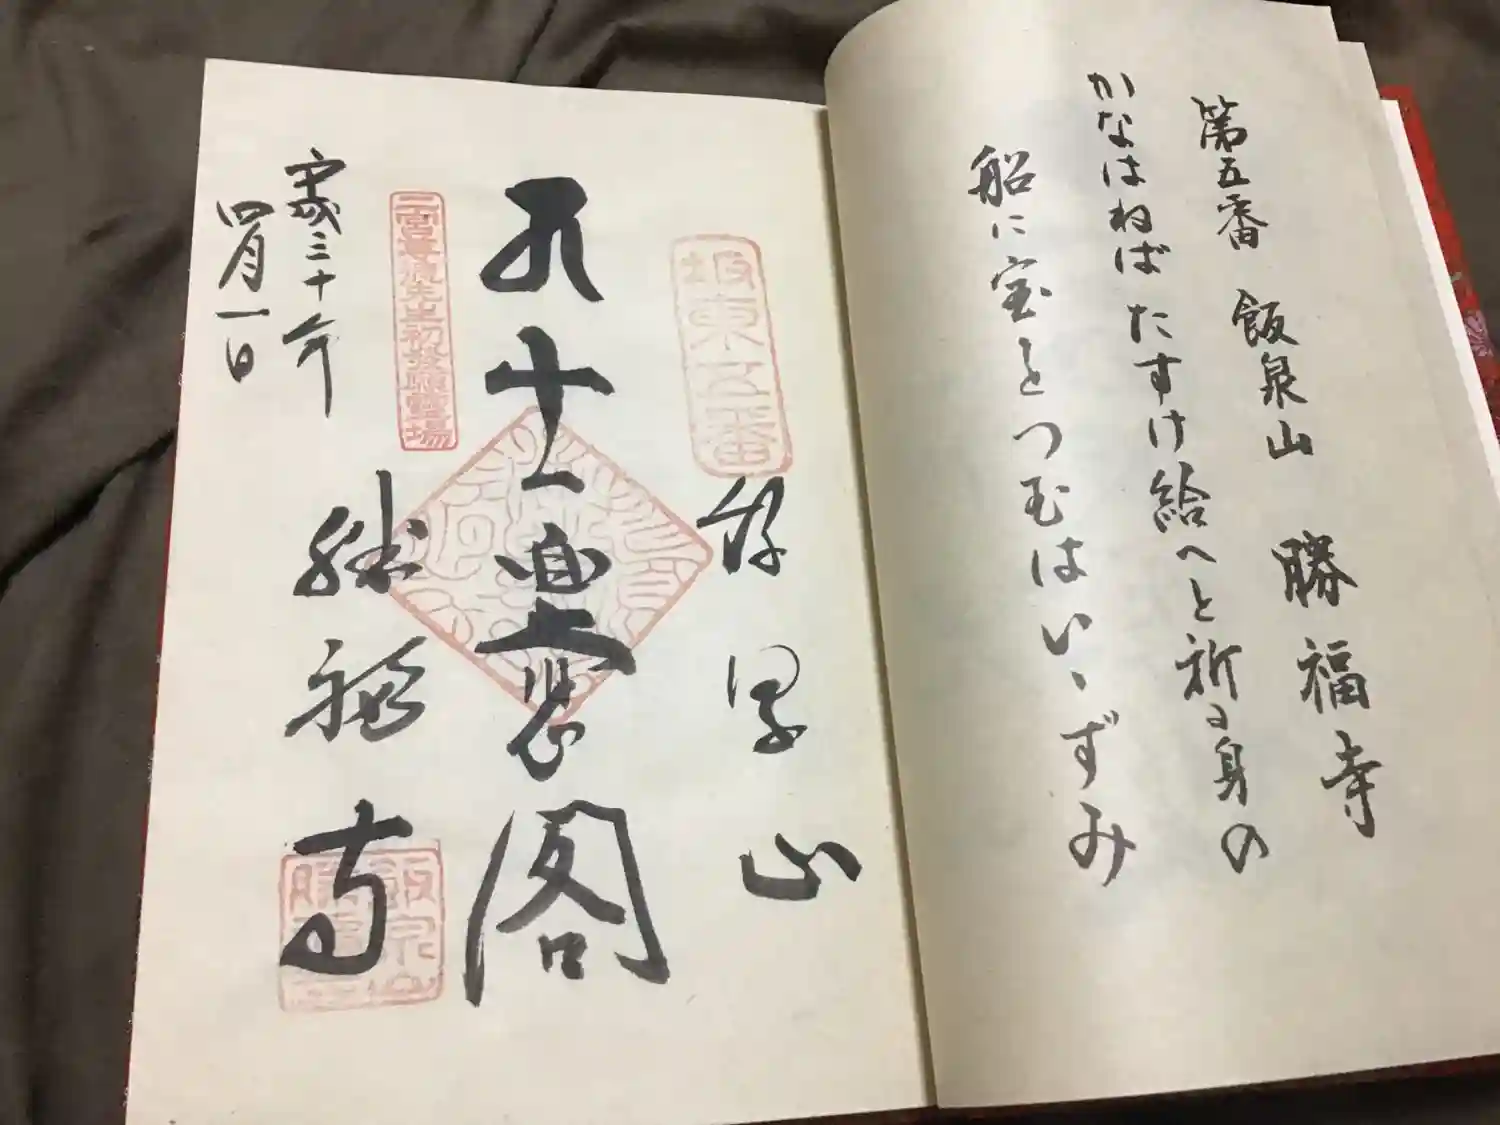 第五番 飯泉山 勝福寺
かなはねば たすけ給へと祈る身の
船に宝をつむはいゝずみ
坂東五番
飯泉山
閣
二宮尊徳先生初発願霊場
勝福寺
平成三十年
四月一日
飯泉山
勝福寺